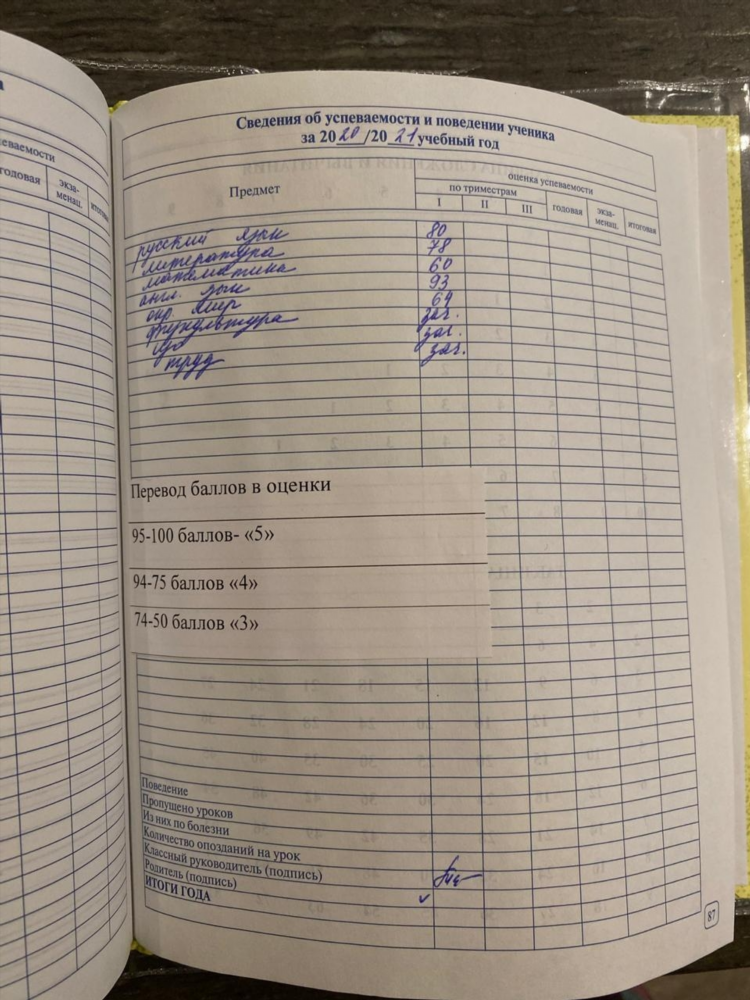 еваемости
годовая экза-менац. итоговая
Сведения об успеваемости и поведении ученика
за 2020/2021 учебный год
Предмет оценка успеваемости
по триместрам годовая экза-менац. итоговая
I II III
русский язык 80
литература 78
математика 60
англ. язык 93
окр. мир 64
физкультура зач.
ИЗО зач.
труд зач.
Перевод баллов в оценки
95-100 баллов- «5»
94-75 баллов «4»
74-50 баллов «3»
Поведение
Пропущено уроков
Из них по болезни
Количество опозданий на урок
Классный руководитель (подпись)
Родитель (подпись)
ИТОГИ ГОДА
87